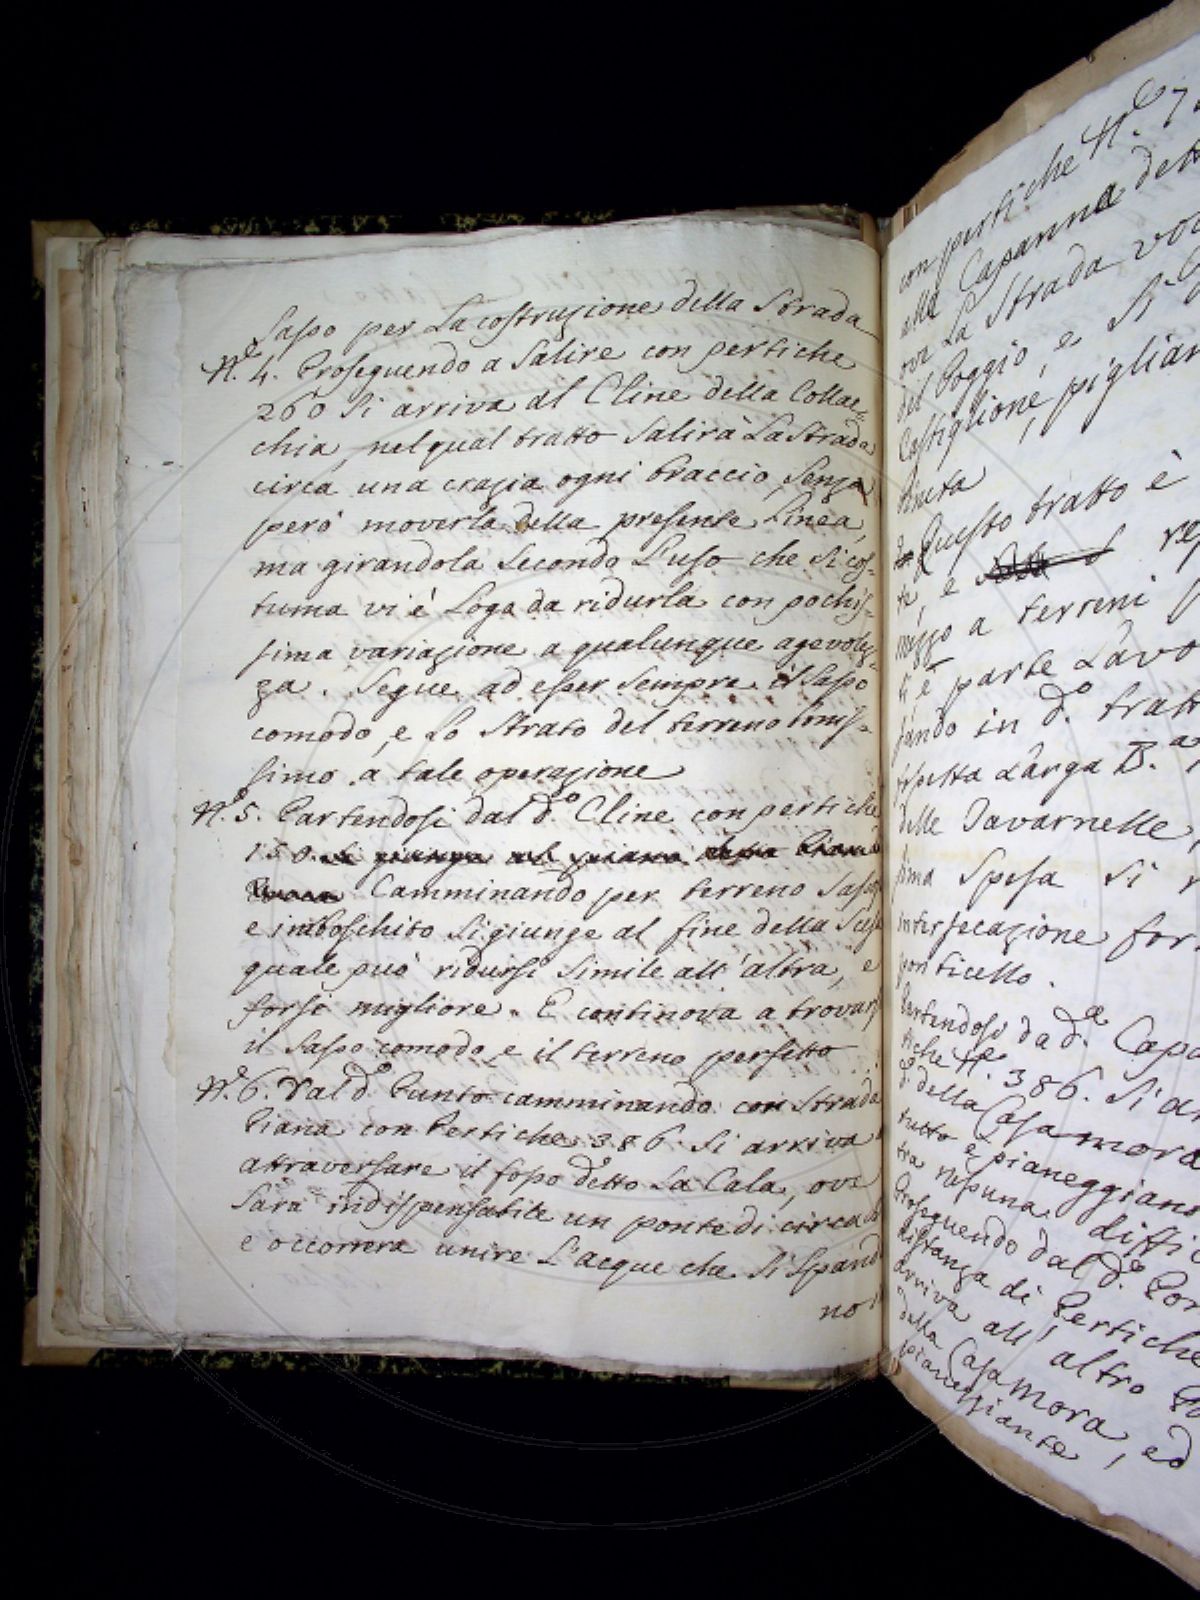 Sasso per La costruzione della Strada
N.º 4. Proseguendo a Salire con pertiche
260 Si arriva al Cline della Collac=
chia, nel qual tratto Salirà La Strada
circa una crazia ogni Braccio, Senza
però moverla della presente Linea,
ma girandola Secondo L'uso che Si cos=
tuma vi è Loga da ridurla con pochis=
sima variazione a qualunque agevolez=
za. Segue ad esser Sempre il Sasso
comodo, e Lo Strato del terreno bonis=
simo a tale operazione
N.º 5. Partendosi dal d.º Cline con pertiche
150. Si giunge al piano della
Camminando per terreno Sassoso
e imboschito Si giunge al fine della Scesa
quale può ridursi Simile all'altra, e
forse migliore. E continova a trovarsi
il Sasso comodo, e il terreno perfetto
N.º 6. Dal d.º Punto camminando con Strada
Piana con Pertiche 386. Si arriva
attraversare il fosso detto La Cala, ove
Sarà indispensabile un ponte di circa
e occorrerà unire L'acque che Si Spando
no
con pertiche N.º 7
alla Capanna dett
ove La Strada vo
del Poggio, e Si
Castiglione, piglian
tenuta
Questo tratto è
te, e re
mezzo a terreni
ti e parte Lavo
sando in d.º tratt
Larga B.ª
delle Tavarnelle,
sima Spesa Si r
intersecazione for
ponticello.
Partendosi da d.ª Capa
tiche N.º 386. Si ar
della Casamora
tutto è pianeggiant
tra nessuna diffic
Proseguendo dal d.º Pon
distanza di Pertiche
arriva all'altro
della Casamora, ed
pianeggiante,